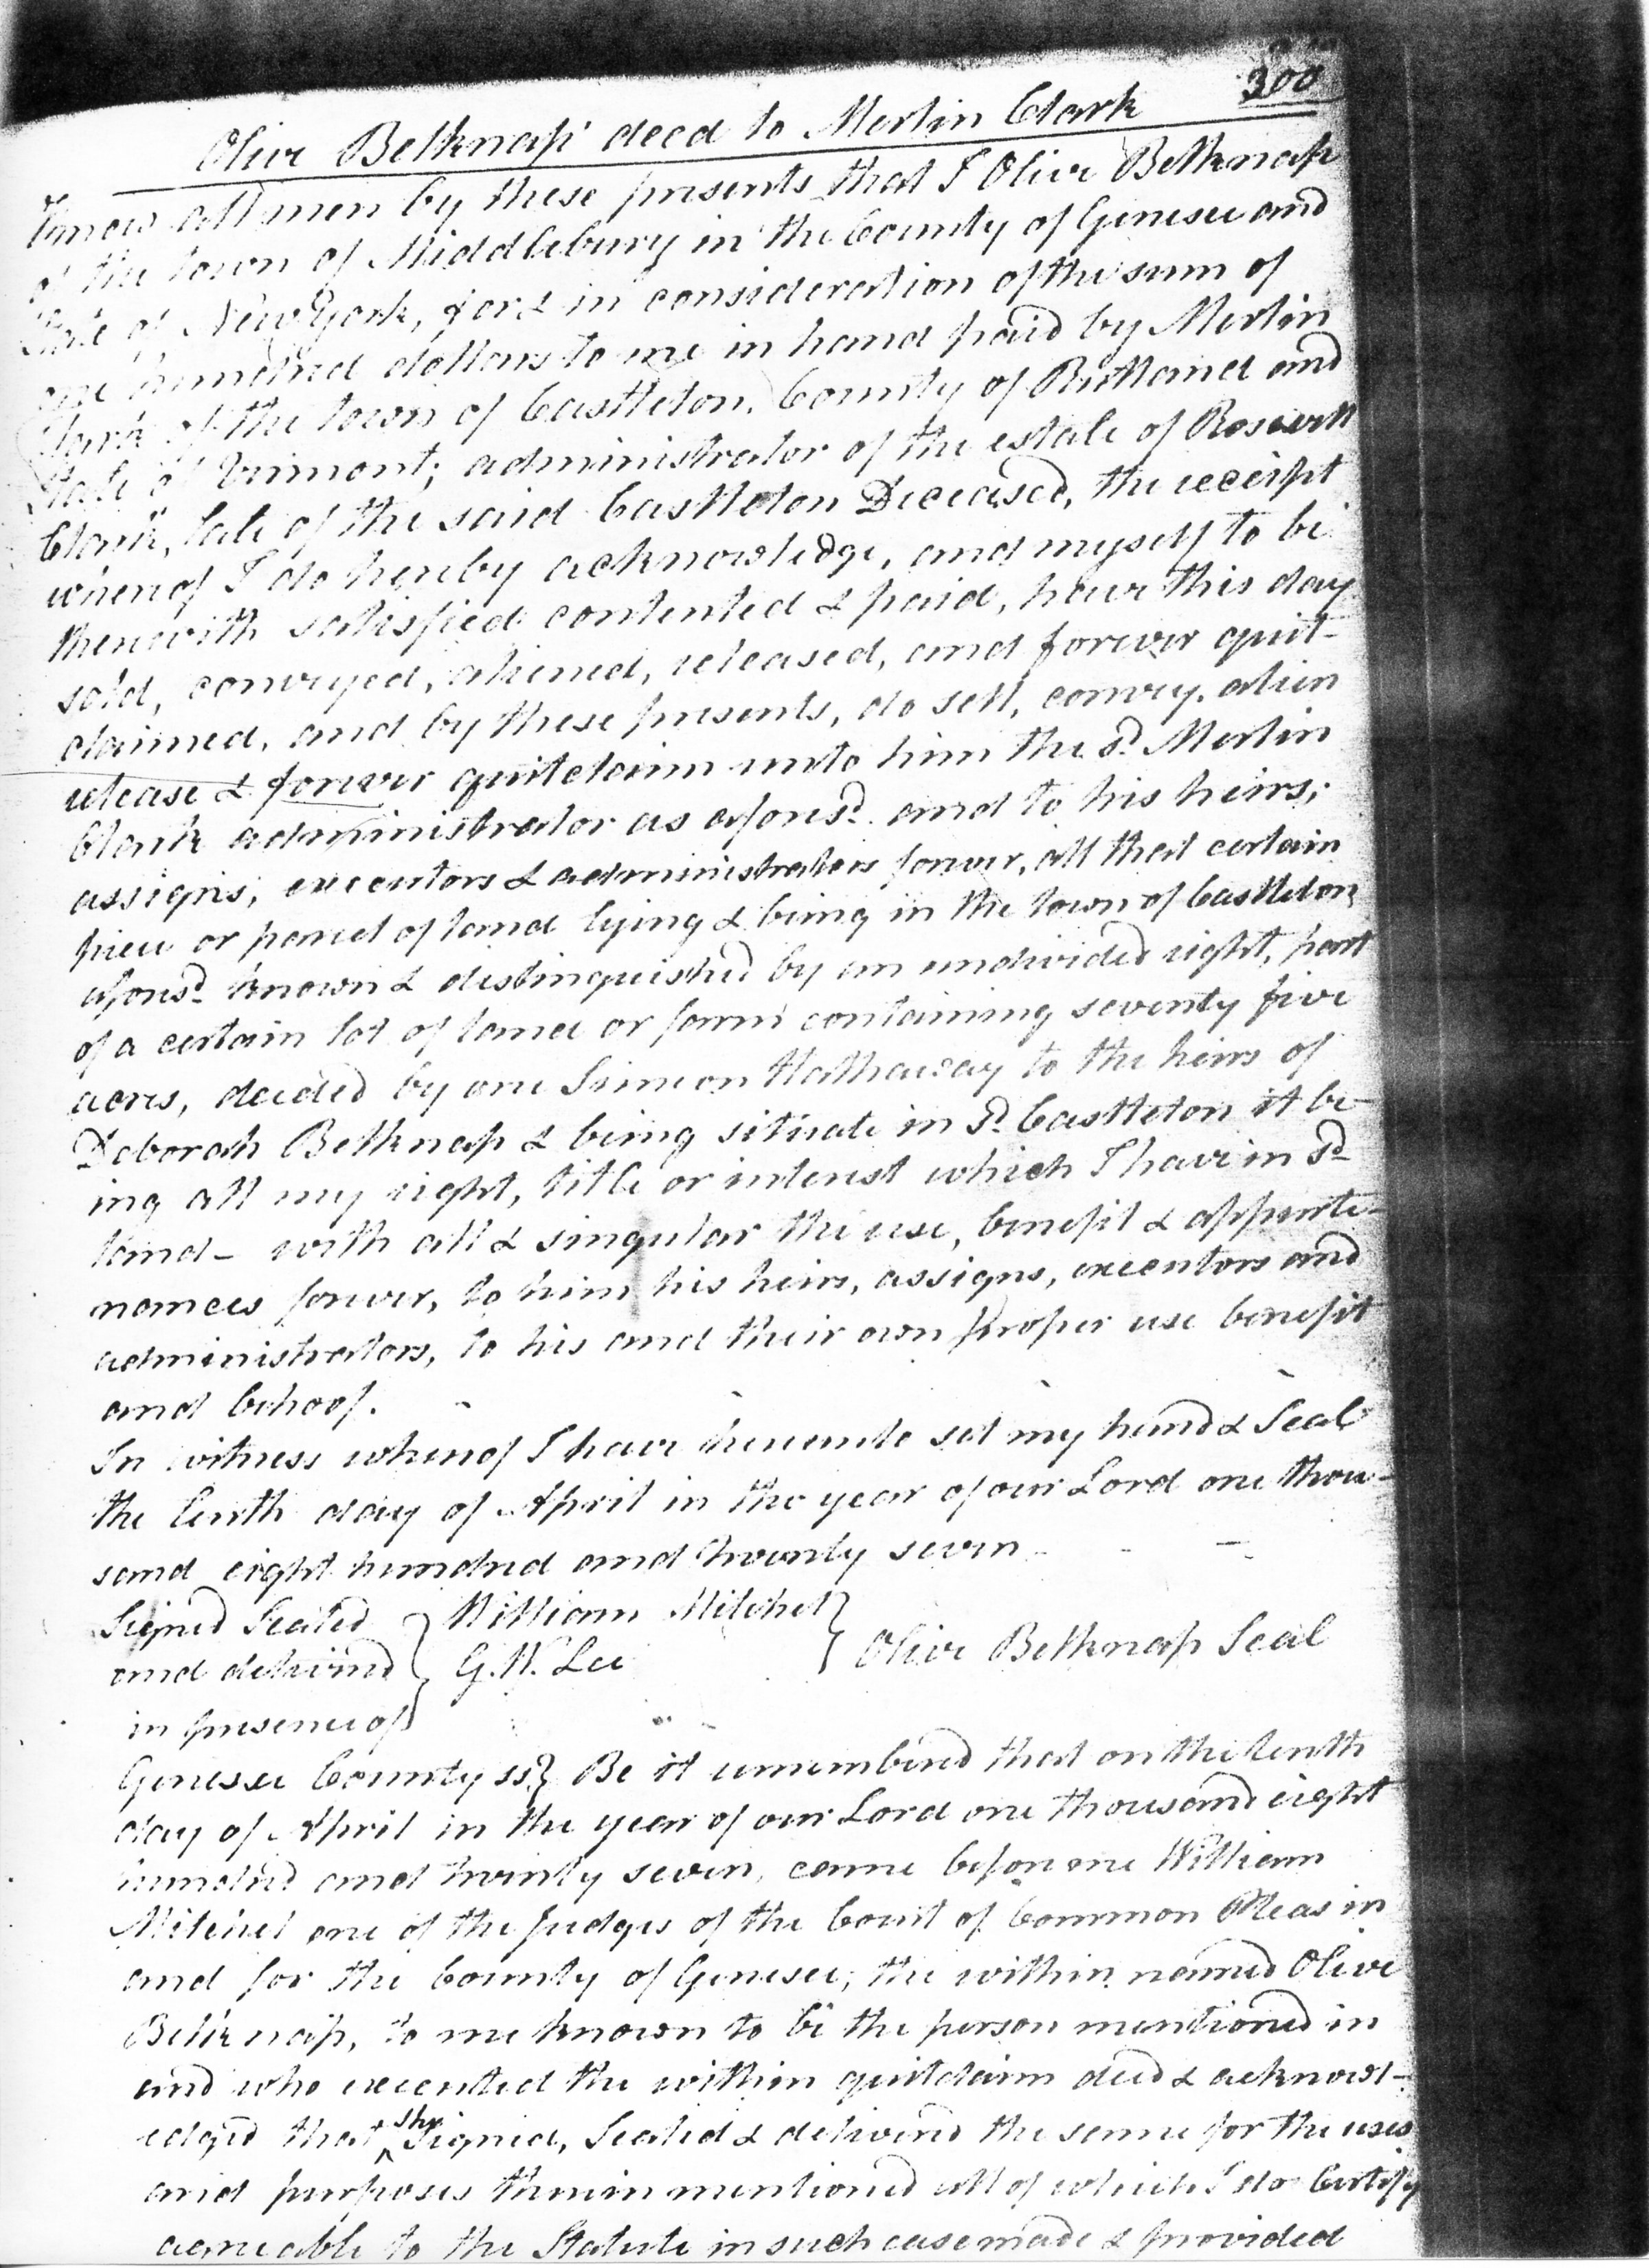 300
Olive Belknap deed to Merlin Clark
Know all men by these presents that I Olive Belknap
of the town of Middlebury in the County of Genesee and
State of New York, for & in consideration of the sum of
one hundred dollars to me in hand paid by Merlin
Clark of the town of Castleton, County of Rutland and
State of Vermont; administrator of the estate of Roswell
Clark, late of the said Castleton Deceased, the receipt
whereof I do hereby acknowledge, and myself to be
therewith satisfied contented & paid, have this day
sold, conveyed, aliened, released, and forever quit-
claimed, and by these presents, do sell, convey, alien
release & forever quitclaim unto him the sd. Merlin
Clark administrator as aforesd. and to his heirs,
assigns, executors & administrators forever, all that certain
piece or parcel of land lying & being in the town of Castleton
aforesd. known & distinguished by an undivided right, part
of a certain lot of land or farm containing seventy five
acres, deeded by one Simeon Hathaway to the heirs of
Deborah Belknap & being situate in sd. Castleton it be-
ing all my right, title or interest which I have in sd
land - with all & singular the use, benefit & appurte-
nances forever, to him his heirs, assigns, executors and
administrators, to his and their own proper use benefit
and behoof.
In witness whereof I have hereunto set my hand & Seal
the tenth day of April in the year of our Lord one thou-
sand eight hundred and twenty seven
Signed Sealed } William Mitchel }
and delivered } G. W. Lee } Olive Belknap Seal
in presence of }
Genesee County ss} Be it remembered that on the tenth
day of April in the year of our Lord one thousand eight
hundred and twenty seven, came before me William
Mitchel one of the Judges of the Court of Common Pleas in
and for the County of Genesee, the within named Olive
Belknap, to me known to be the person mentioned in
and who executed the within quitclaim deed & acknowl-
edged that she signed, Sealed & delivered the same for the uses
and purposes therein mentioned all of which I do Certify
agreeable to the Statute in such case made & provided